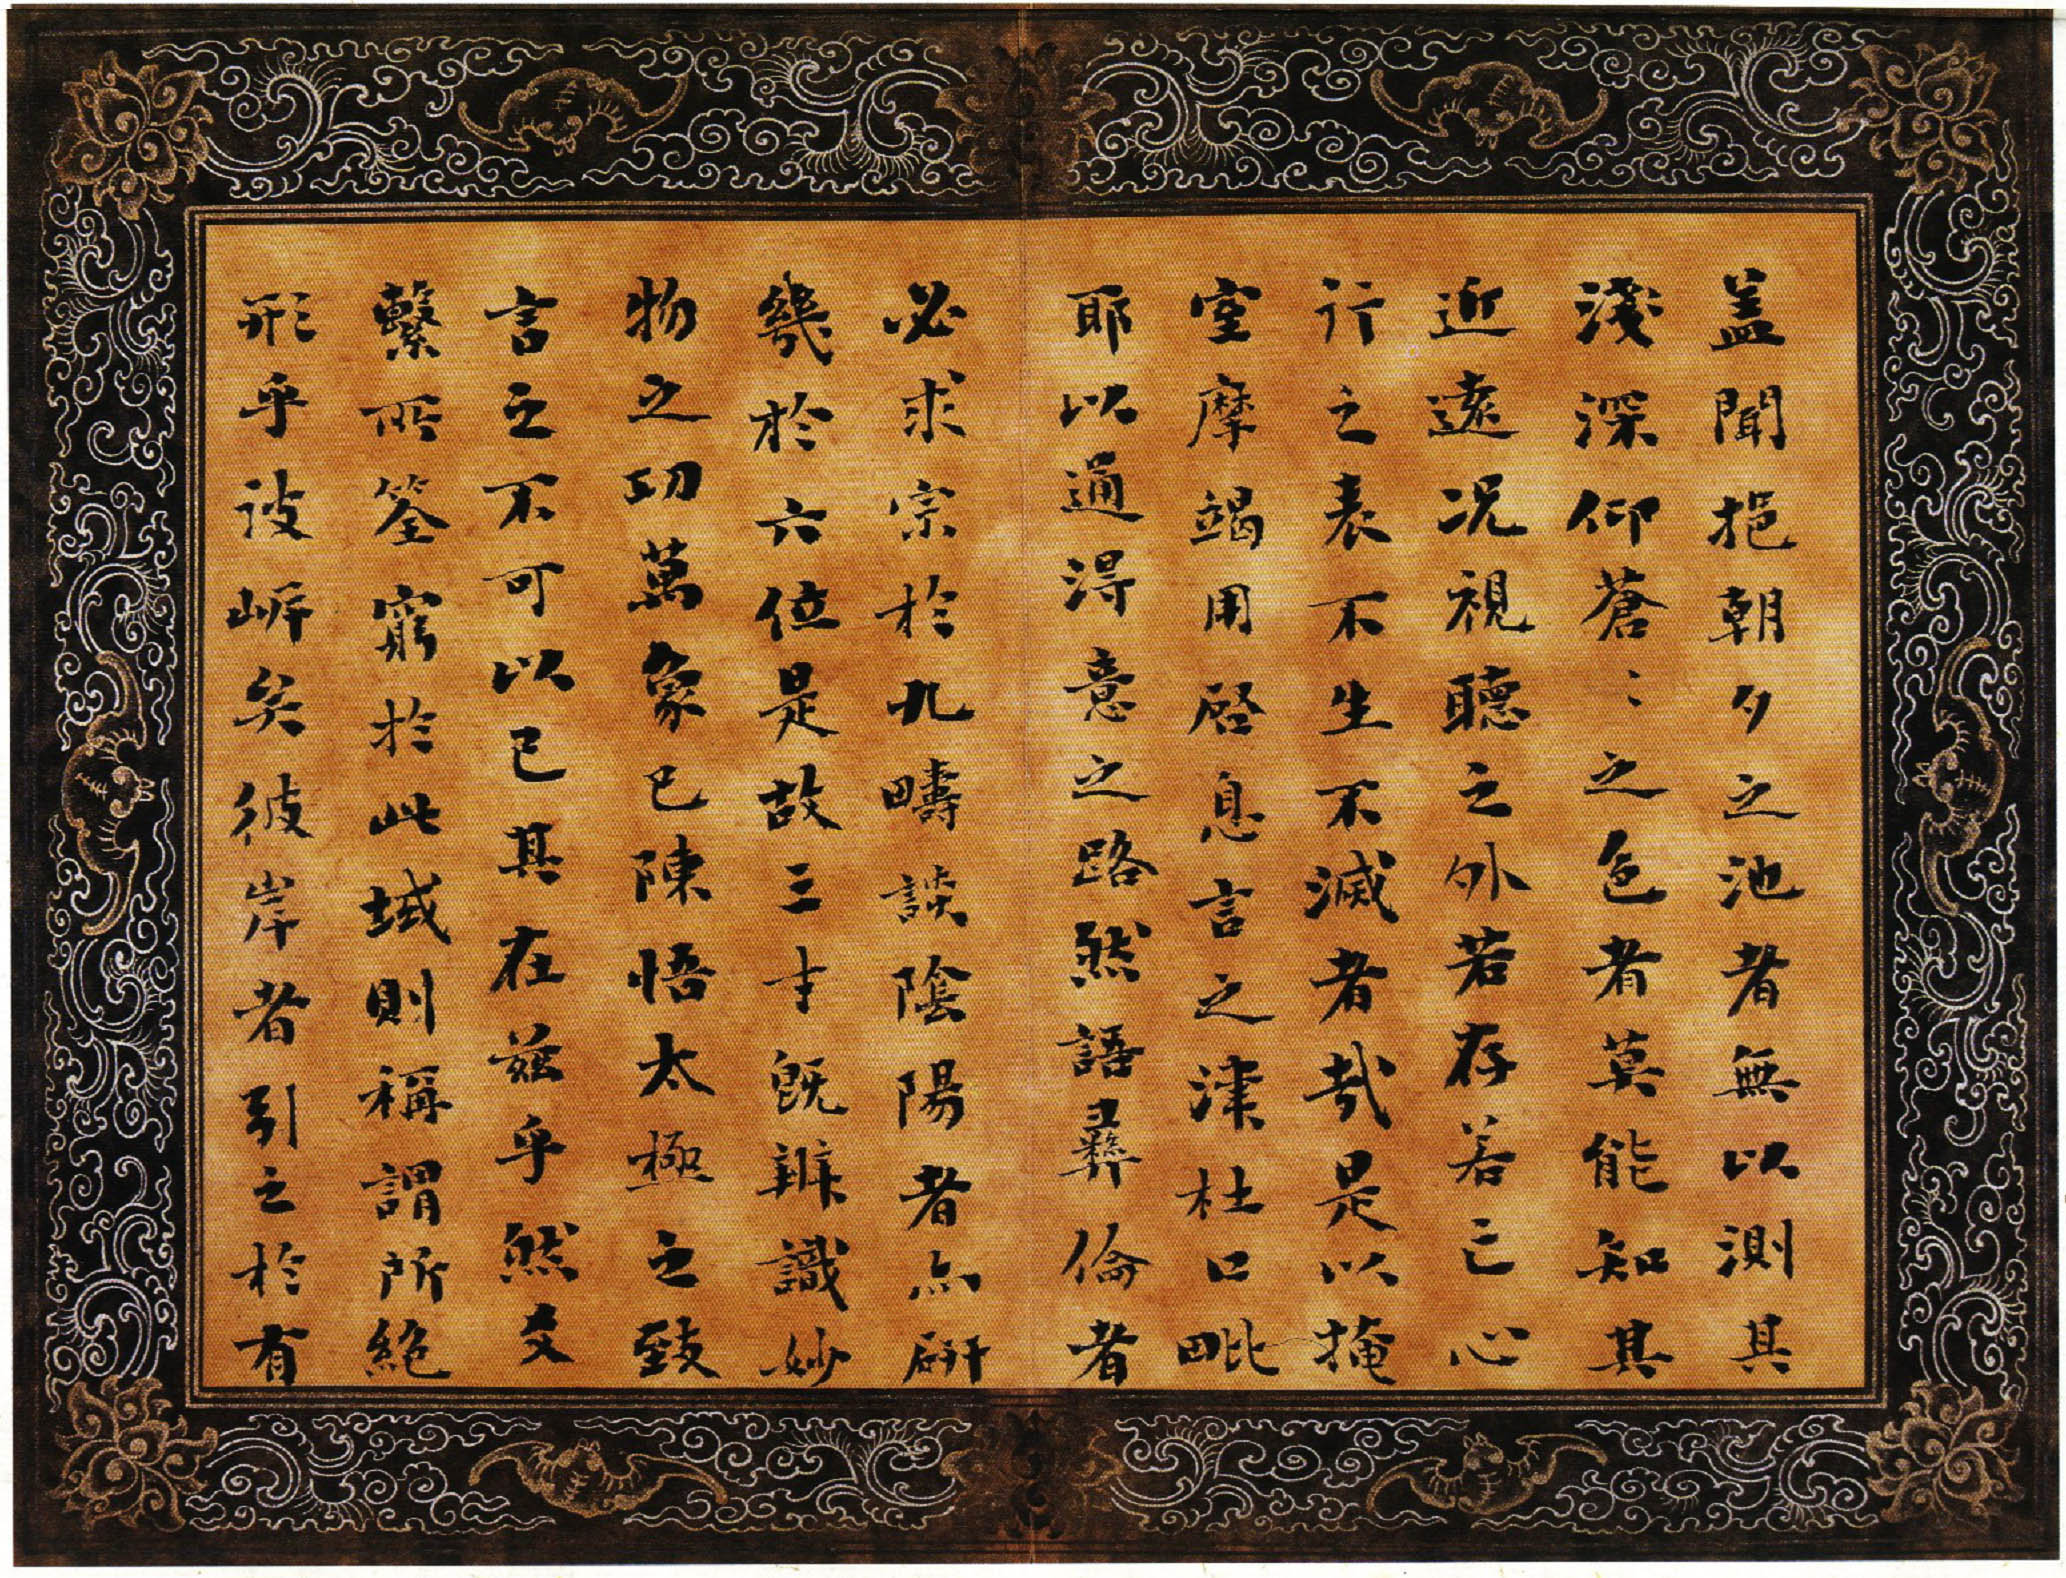 盖聞挹朝夕之池者無以測其
淺深仰蒼〻之色者莫能知其
近遠况視聽之外若存若亡心
行之表不生不滅者哉是以掩
室摩竭用啓息言之津杜口毗
耶以通得意之路然語彝倫者
必求宗於九疇談陰陽者亦研
幾於六位是故三才既辨識妙
物之功萬象已陳悟太極之致
言之不可以已其在兹乎然爻
繫所筌窮於此域則稱謂所絶
形乎彼岸矣彼岸者引之於有